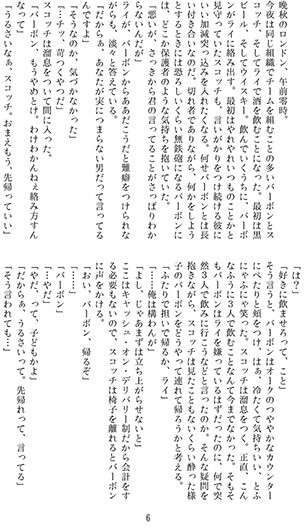 晩秋のロンドン、午前零時。
今夜は同じ組織でチームを組むことの多いバーボンとス
コッチ、そしてライで酒を飲むことになった。最初は黒
ビール、そしてウイスキー。飲んでいくうちに、バーボ
ンがライに絡み出す。最初はやれやれいつものことかと
見守っていたスコッチも、言いがかりをつけ続ける彼に
いい加減突っ込みを入れたくなった。何せバーボンとは長
い付き合いなのだ。切れ者でありながら、何かをしよう
とするときには恐ろしくらい無鉄砲になるバーボンに
は、どこか保護者のような気持ちを抱いていた。
「悪いが、さっきから君の言ってることがさっぱりわか
らないんだが」
ライが、バーボンからああだこうだと難癖をつけられな
がらも、淡々と答えている。
「だからぁ、あなたが実につまらない男だって言ってる
んですよ」
「そうなのか、気づかなかった」
「…チッ、苛つくやつだ」
「バーボン、もうやめとけ。わけわかんねぇ絡み方すん
なって」
スコッチは溜息をついて間に入った。
「うるさいなぁ、スコッチ。おまえもう、先帰っていい」
「は？」
「好きに飲ませろって、こと」
そう言うと、バーボンはオークのつややかなカウンター
にぺたりと頬をつけ、はぁ、冷たくて気持ちいい、とふ
にゃふにゃ笑った。スコッチは溜息をつく。正直、こん
なふうに３人で飲むことなんて今までなかった。そもそ
もバーボンはライを嫌っているはずだったのに、何で突
然３人で飲みに行こうなどと言ったのか。そんな疑問を
抱きながら、スコッチは見たこともないくらい酔った様
子のバーボンをどうやって連れて帰ろうかと考える。
「ふたりで担いで帰るか、ライ」
「…俺は構わんが」
「よし、じゃあまずは立ち上がらせないと」
ここはキャッシュ・オン・デリバリー制だから会計をす
る必要もないので、スコッチは椅子を離れるとバーボン
に声をかける。
「おい、バーボン、帰るぞ」
「……」
「バーボン」
「…やだ」
「やだ、って、子どもかよ」
「だからぁ、うるさいって。先帰れって、言ってる」
「そう言われても…」
6